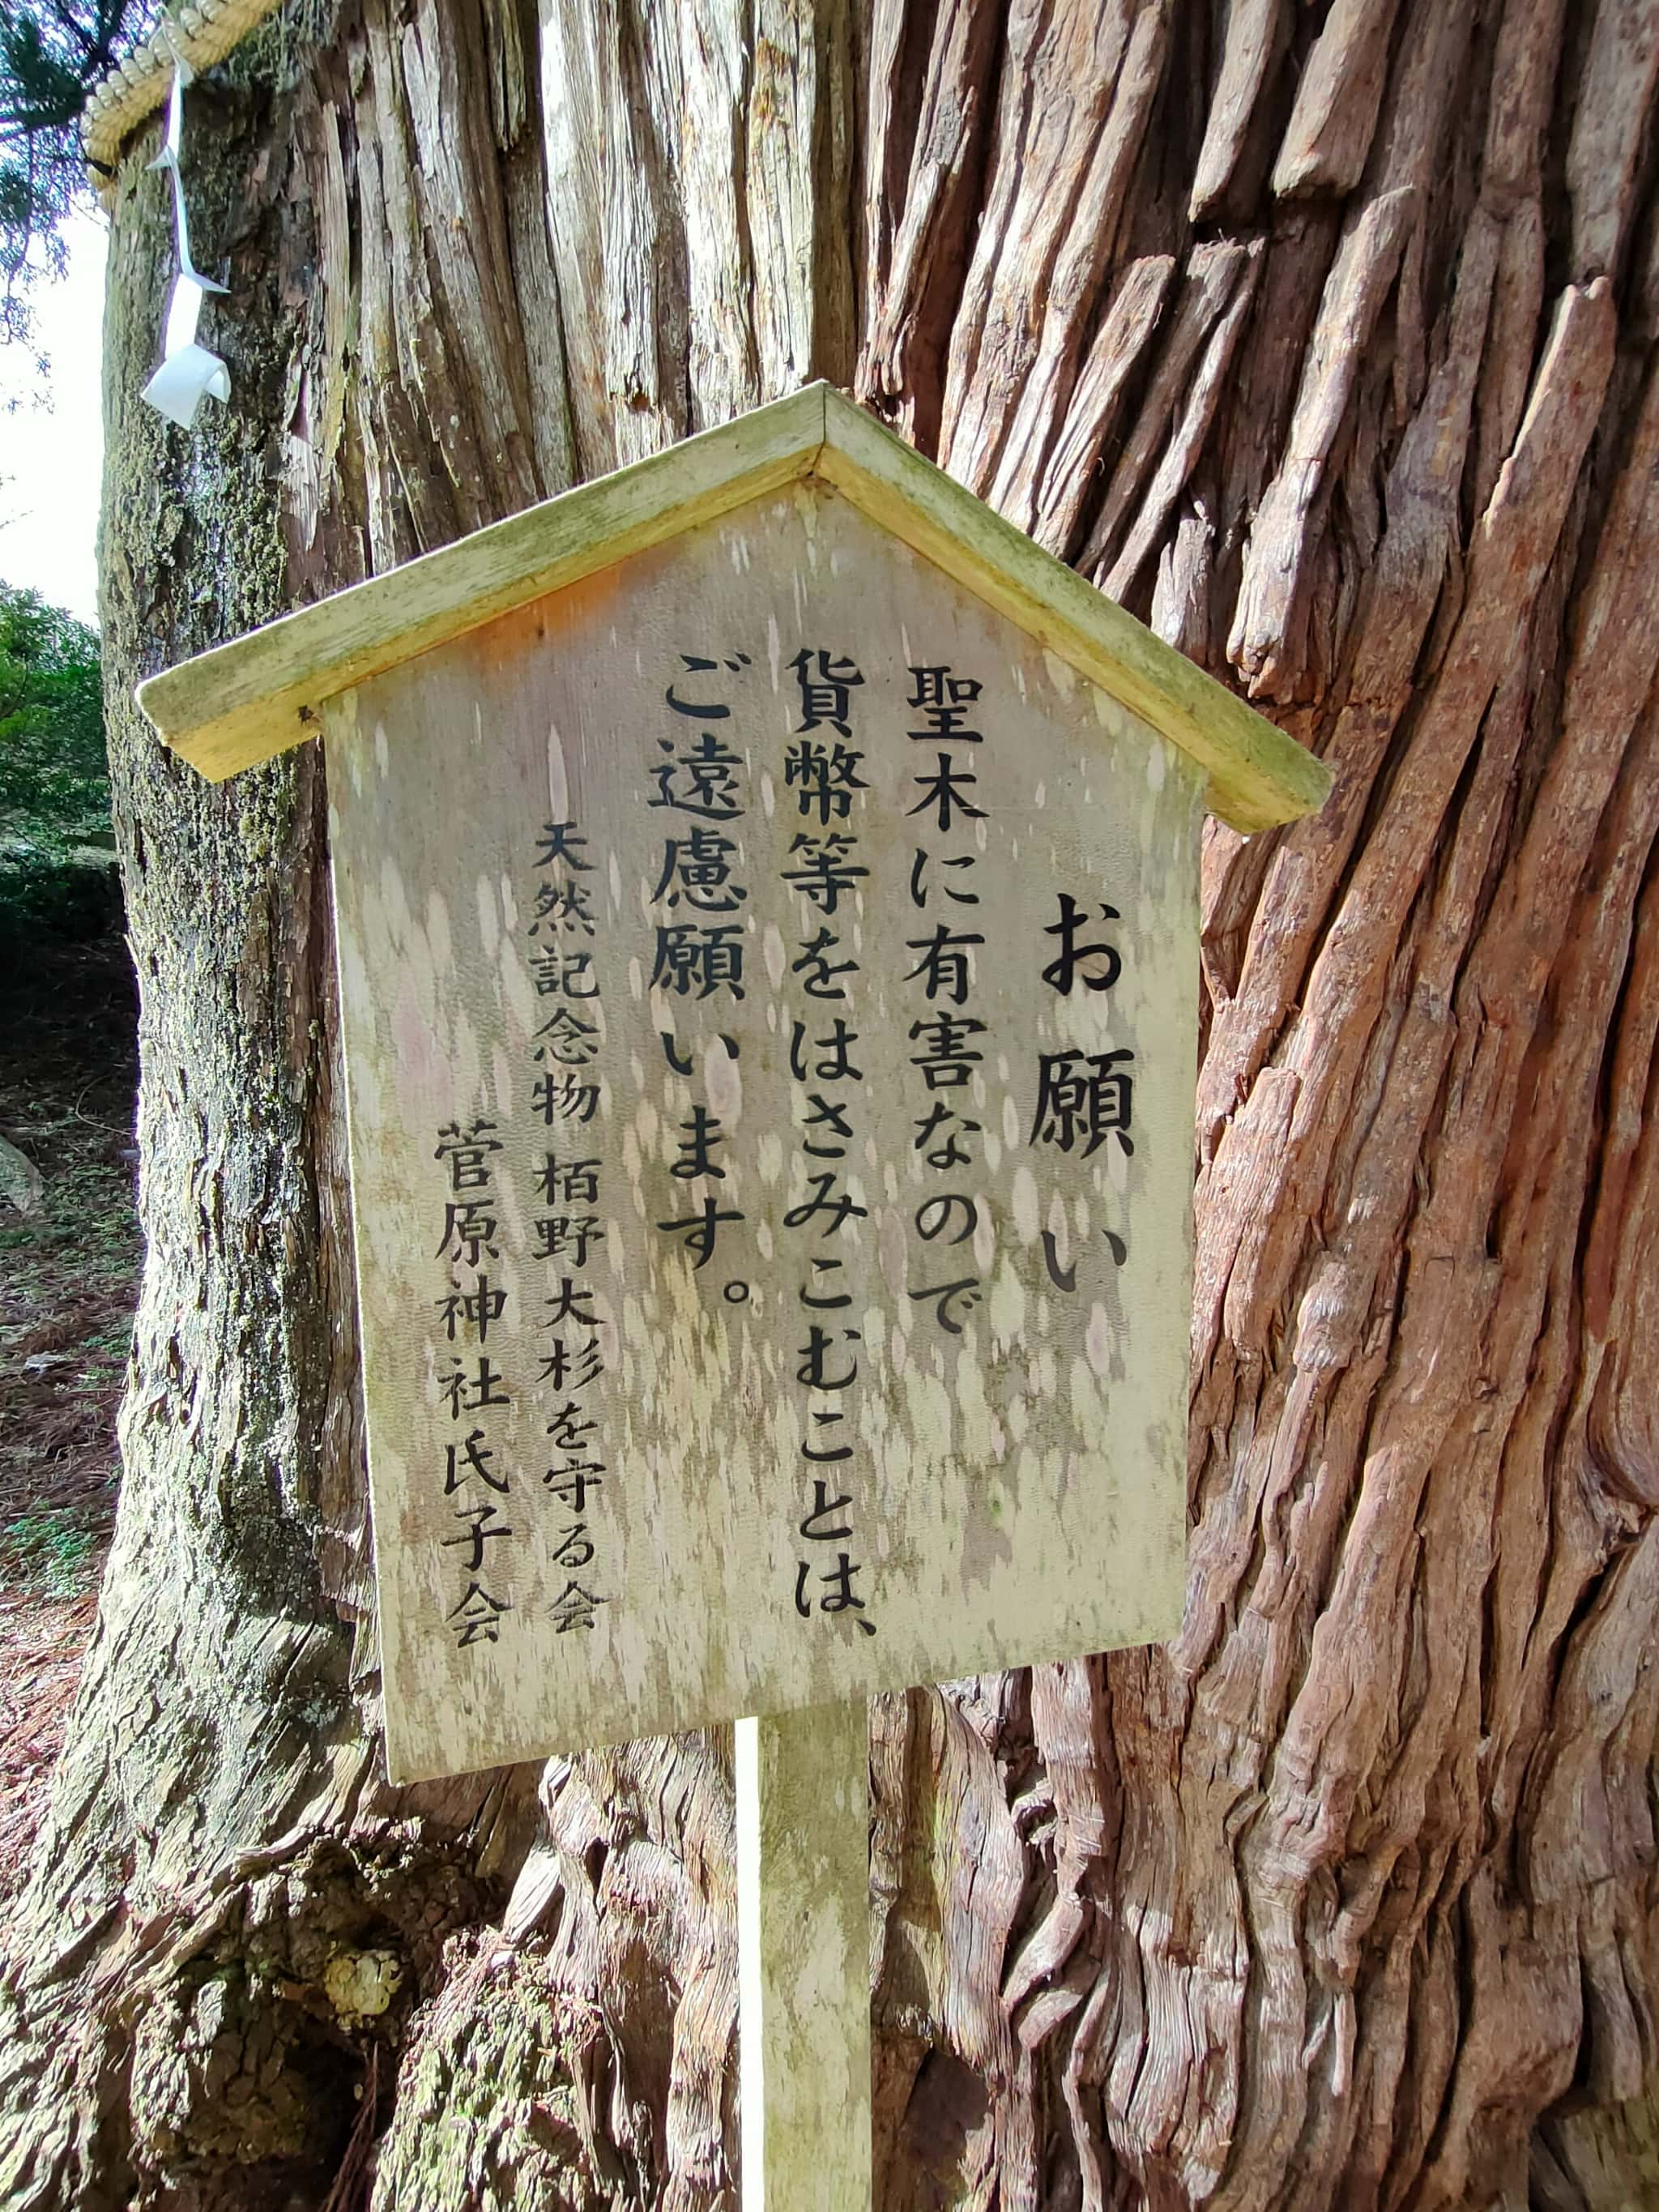 お願い
聖木に有害なので
貨幣等をはさみこむことは、
ご遠慮願います。
天然記念物 栢野大杉を守る会
菅原神社氏子会